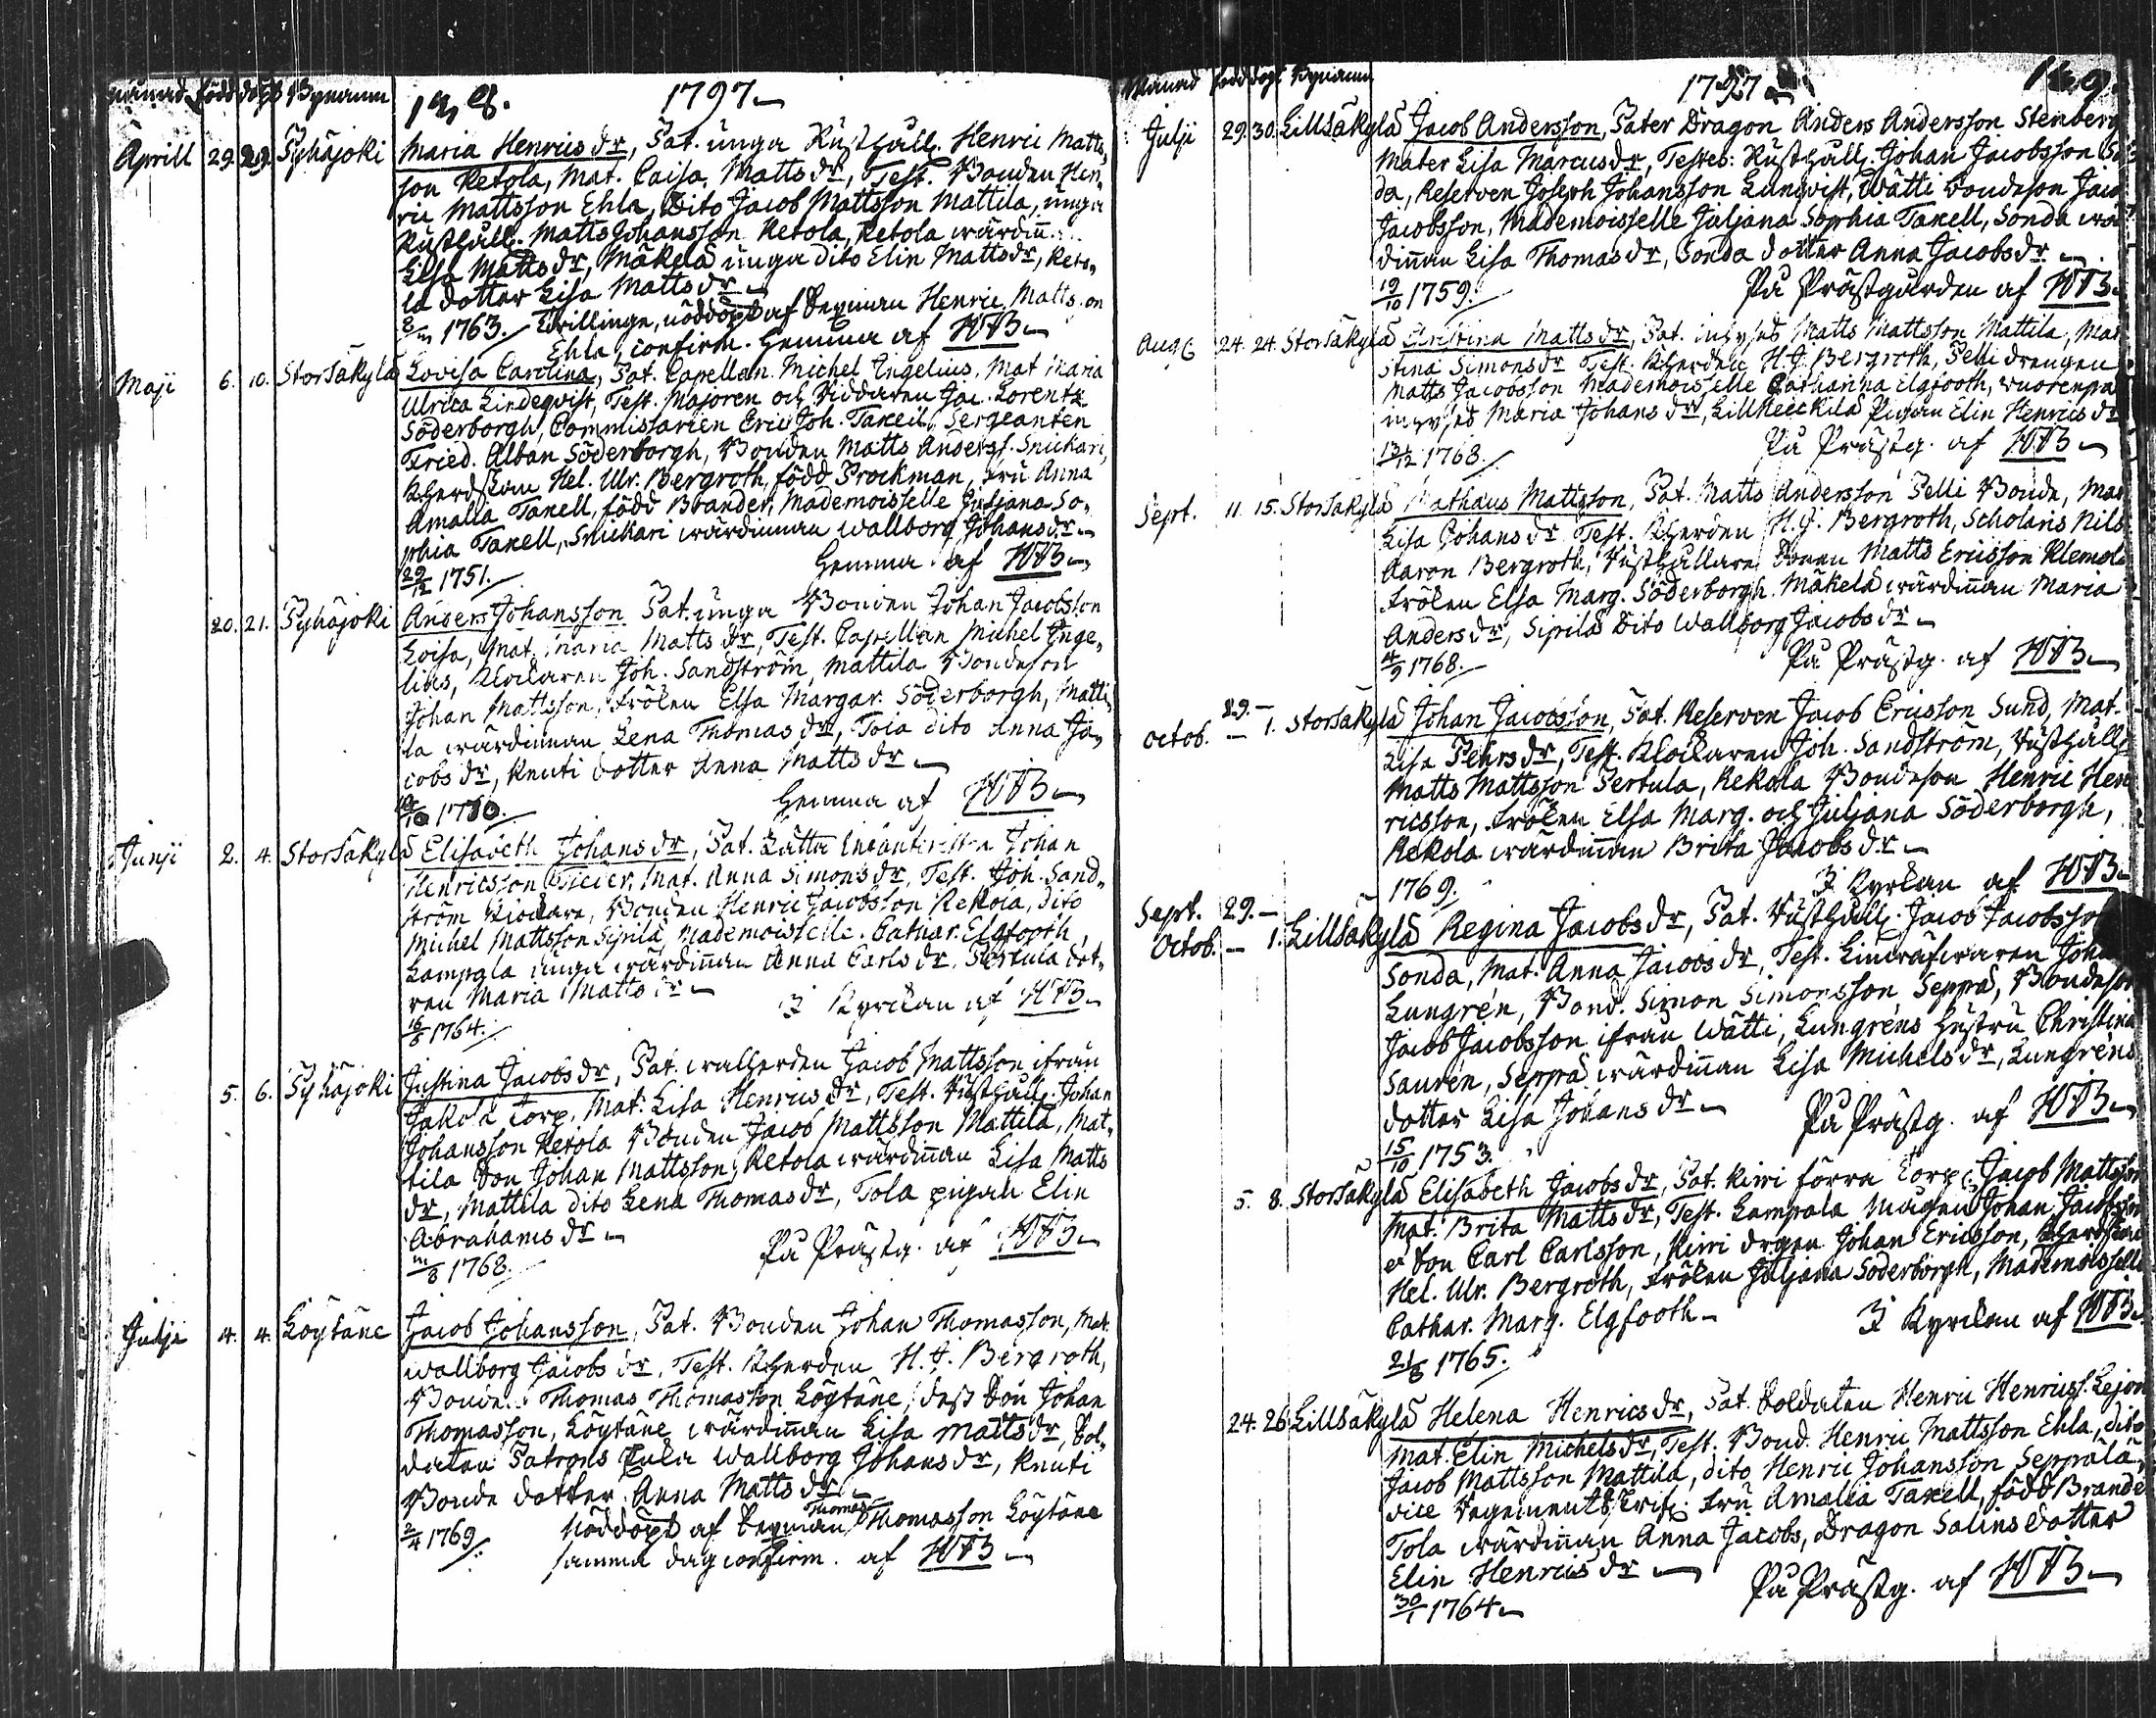 Månad född döpt Bynamn 148. 1797
Aprill 29. 29. Pyhäjoki Maria Henrics dr, Pat. unga Rusthåll. Henric Matts,
son Ketola, Mat. Caisa Matts dr, Test. Bonden Hen,
ric Mattsson Ehla, Dito Jacob Mattsson Mattila, unga
Rusthåll. Matts Johansson Ketola, Ketola wärdinn.
Lisa Matts dr, Mäkelä unga dito Elin Matts dr, Keto,
la dotter Lisa Matts dr
1763. Trillinge, nöddöpt af Dexman Henric Mattsson
Ehla, confirm. hemma af HJB
Maji 6. 10. Storsäkylä Lovisa Carolina, Pat. Capellan. Michel Ingelius, Mat Maria
Ulrica Lindeqvist, Test. Majoren och Riddaren Jac. Lorentz
Söderborgh, Commissarien Eric Joh. Taxell, Sergeanten
Fried. Alban Söderborgh, Bonden Matts Anderss. Snickari,
Kherdskan Hel. Ulr. Bergroth, född Prockman, Fru Anna
Amalia Taxell, född Brander, Mademoisselle Juljana So,
phia Taxell, Snickari wärdinnan Wallborg Johans dr
29/12 1751. Hemma af HJB
20. 21. Pyhäjoki Anders Johansson Pat. unga Bonden Johan Jacobsson
Loisa, Mat. Maria Matts dr, Test. Capellan Michel Inge,
lius, Klockaren Joh. Sandström, Mattila Bondeson
Johan Mattsson, Frölen Elsa Margar. Söderborgh, Matti,
la wärdinnan Lena Thomas dr, Tola dito Anna Ja,
cobs dr, Knuti dotter Anna Matts dr
Hemma af HJB
Junji 2. 4. Storsäkylä Elisabeth Johans dr, Pat. Lätta Infanteristen Johan
Henricsson, Mat. Anna Simons dr, Test. Joh. Sand,
ström Klockare, Bonden Henric Jacobsson Rekola, dito
Michel Mattsson Sipilä, Mademoisselle Cathar. Elgfooth,
Lampala unga wärdinnan Anna Carls dr, Sertula dot,
ren Maria Matts dr I Kyrckan af HJB
1764.
5. 6. Pyhäjoki Justina Jacobs dr, Pat. wallherden Jacob Mattsson ifrån
Jakola Torp, Mat. Lisa Henrics dr, Test. Rusthåll. Johan
Johansson Ketola Bonden Jacob Mattsson Mattila, Mat,
tila Son Johan Mattsson, Ketola wärdinnan Lisa Matts
dr, Mattila dito Lena Thomas dr, Tola pigan Elin
Abrahams dr På Prästg. af HJB
1768.
Julji 4. 4. Löytäne Jacob Johansson, Pat. Bonden Johan Thomasson, Mat.
Wallborg Jacobs dr, Test. Kherden H. J. Bergroth,
Bonden Thomas Thomasson Löytäne, dess Son Johan
Thomasson, Löytäne wärdinnan Lisa Matts dr, Sol,
daten Patrons Enka Wallborg Johans dr, Knuti
Bonde dotter Anna Matts dr
2/4 1769. Nöddöpt af Dexman Thomas Thomasson Löytäne
samma dag confirm. af HJB
Månad född döpt Bynamn 1797 149.
Julji 29. 30. Lillsäkylä Jacob Andersson, Pater Dragon Anders Andersson Stenberg
Mater Lisa Marcus dr, Testes: Rusthåll. Johan Jacobsson So
da, Reserven Joseph Johansson Lunqvist, Wätti Bondeson Jaco
Jacobsson, Mademoisselle Juljana Sophia Taxell, Sonda wär
dinnan Lisa Thomas dr, Sonda dotter Anna Jacobs dr
19/10 1759. På Prästgården af HJB
Aug. 24. 24. Storsäkylä Christina Matts dr, Pat. Inhyses Matts Mattsson Mattila, Mat
stina Simons dr Test. Kherden H. J. Bergroth, Pelli drengen
Matts Jacobsson Mademoisselle Catharina Elgfooth, Wuorenpä
inhyses Maria Johans dr, Lillkeickilä Pigan Elin Henrics dr
13/12 1768. På Prästg. af HJB
Sept. 11. 15. Storsäkylä Mathæus Mattsson, Pat. Matts Andersson Pelli Bonde, Mat
Lisa Johans dr Test. Kherden H. J. Bergroth, Scholaris Nils
Aaron Bergroth, Rusthållare Sonen Matts Ericsson Klemola
Frölen Elsa Marg. Söderborgh. Mäkelä wärdinnan Maria
Anders dr, Sipilä Dito Wallborg Jacobs dr
4/9 1768. På Prästg. af HJB
29. –
Octob. – 1. Storsäkylä Johan Jacobsson, Pat. Reserven Jacob Ericsson Sund, Mat.
Lisa Pehrs dr, Test. Klockaren Joh. Sandström, Rusthåll.
Matts Mattsson Sertula, Rekola Bondeson Henric Hen
ricsson, Frölen Elsa Marg. och Juljana Söderborgh,
Rekola wärdinnan Brita Jacobs dr
1769. I Kyrckan af HJB
Sept. 29. –
Octob. – 1. Lillsäkylä Regina Jacobs dr, Pat. Rusthåll. Jacob Jacobsson
Sonda, Mat. Anna Jacobs dr, Test. Linwäfwaren Joha
Lungrén, Bond. Simon Simonsson Seppä, Bondeson
Jacob Jacobsson ifrån Wätti, Lungréns hustru Christina
Saurén, Seppä wärdinnan Lisa Michels dr, Lungréns
dotter Lisa Johans dr På Prästg. af HJB
15/10 1753.
5. 8. Storsäkylä Elisabeth Jacobs dr, Pat. Kiwi förra Torp. Jacob Mattsson
Mat. Brita Matts dr, Test. Lampala Mågen Johan Jacobsson
Son Carl Carlsson, Kiwi drgen Johan Ericsson, Kherdskan
Hel. Ulr. Bergroth, Frölen Juljana Söderborgh, Mademoisselle
Cathar. Marg. Elgfooth I Kyrckan af HJB
21/8 1765.
24. 26. Lillsäkylä Helena Henrics dr, Pat. Soldaten Henric Henricss. Lejon
Mat. Elin Michels dr, Test. Bond. Henric Mattsson Ehla, dito
Jacob Mattsson Mattila, dito Henric Johansson Seppälä,
vice Regementsskrif. Fru Amalia Taxell, född Brande
Tola wärdinnan Anna Jacobs, Dragon Salins dotter
Elin Henrics dr På Prästg. af HJB
30/1 1764